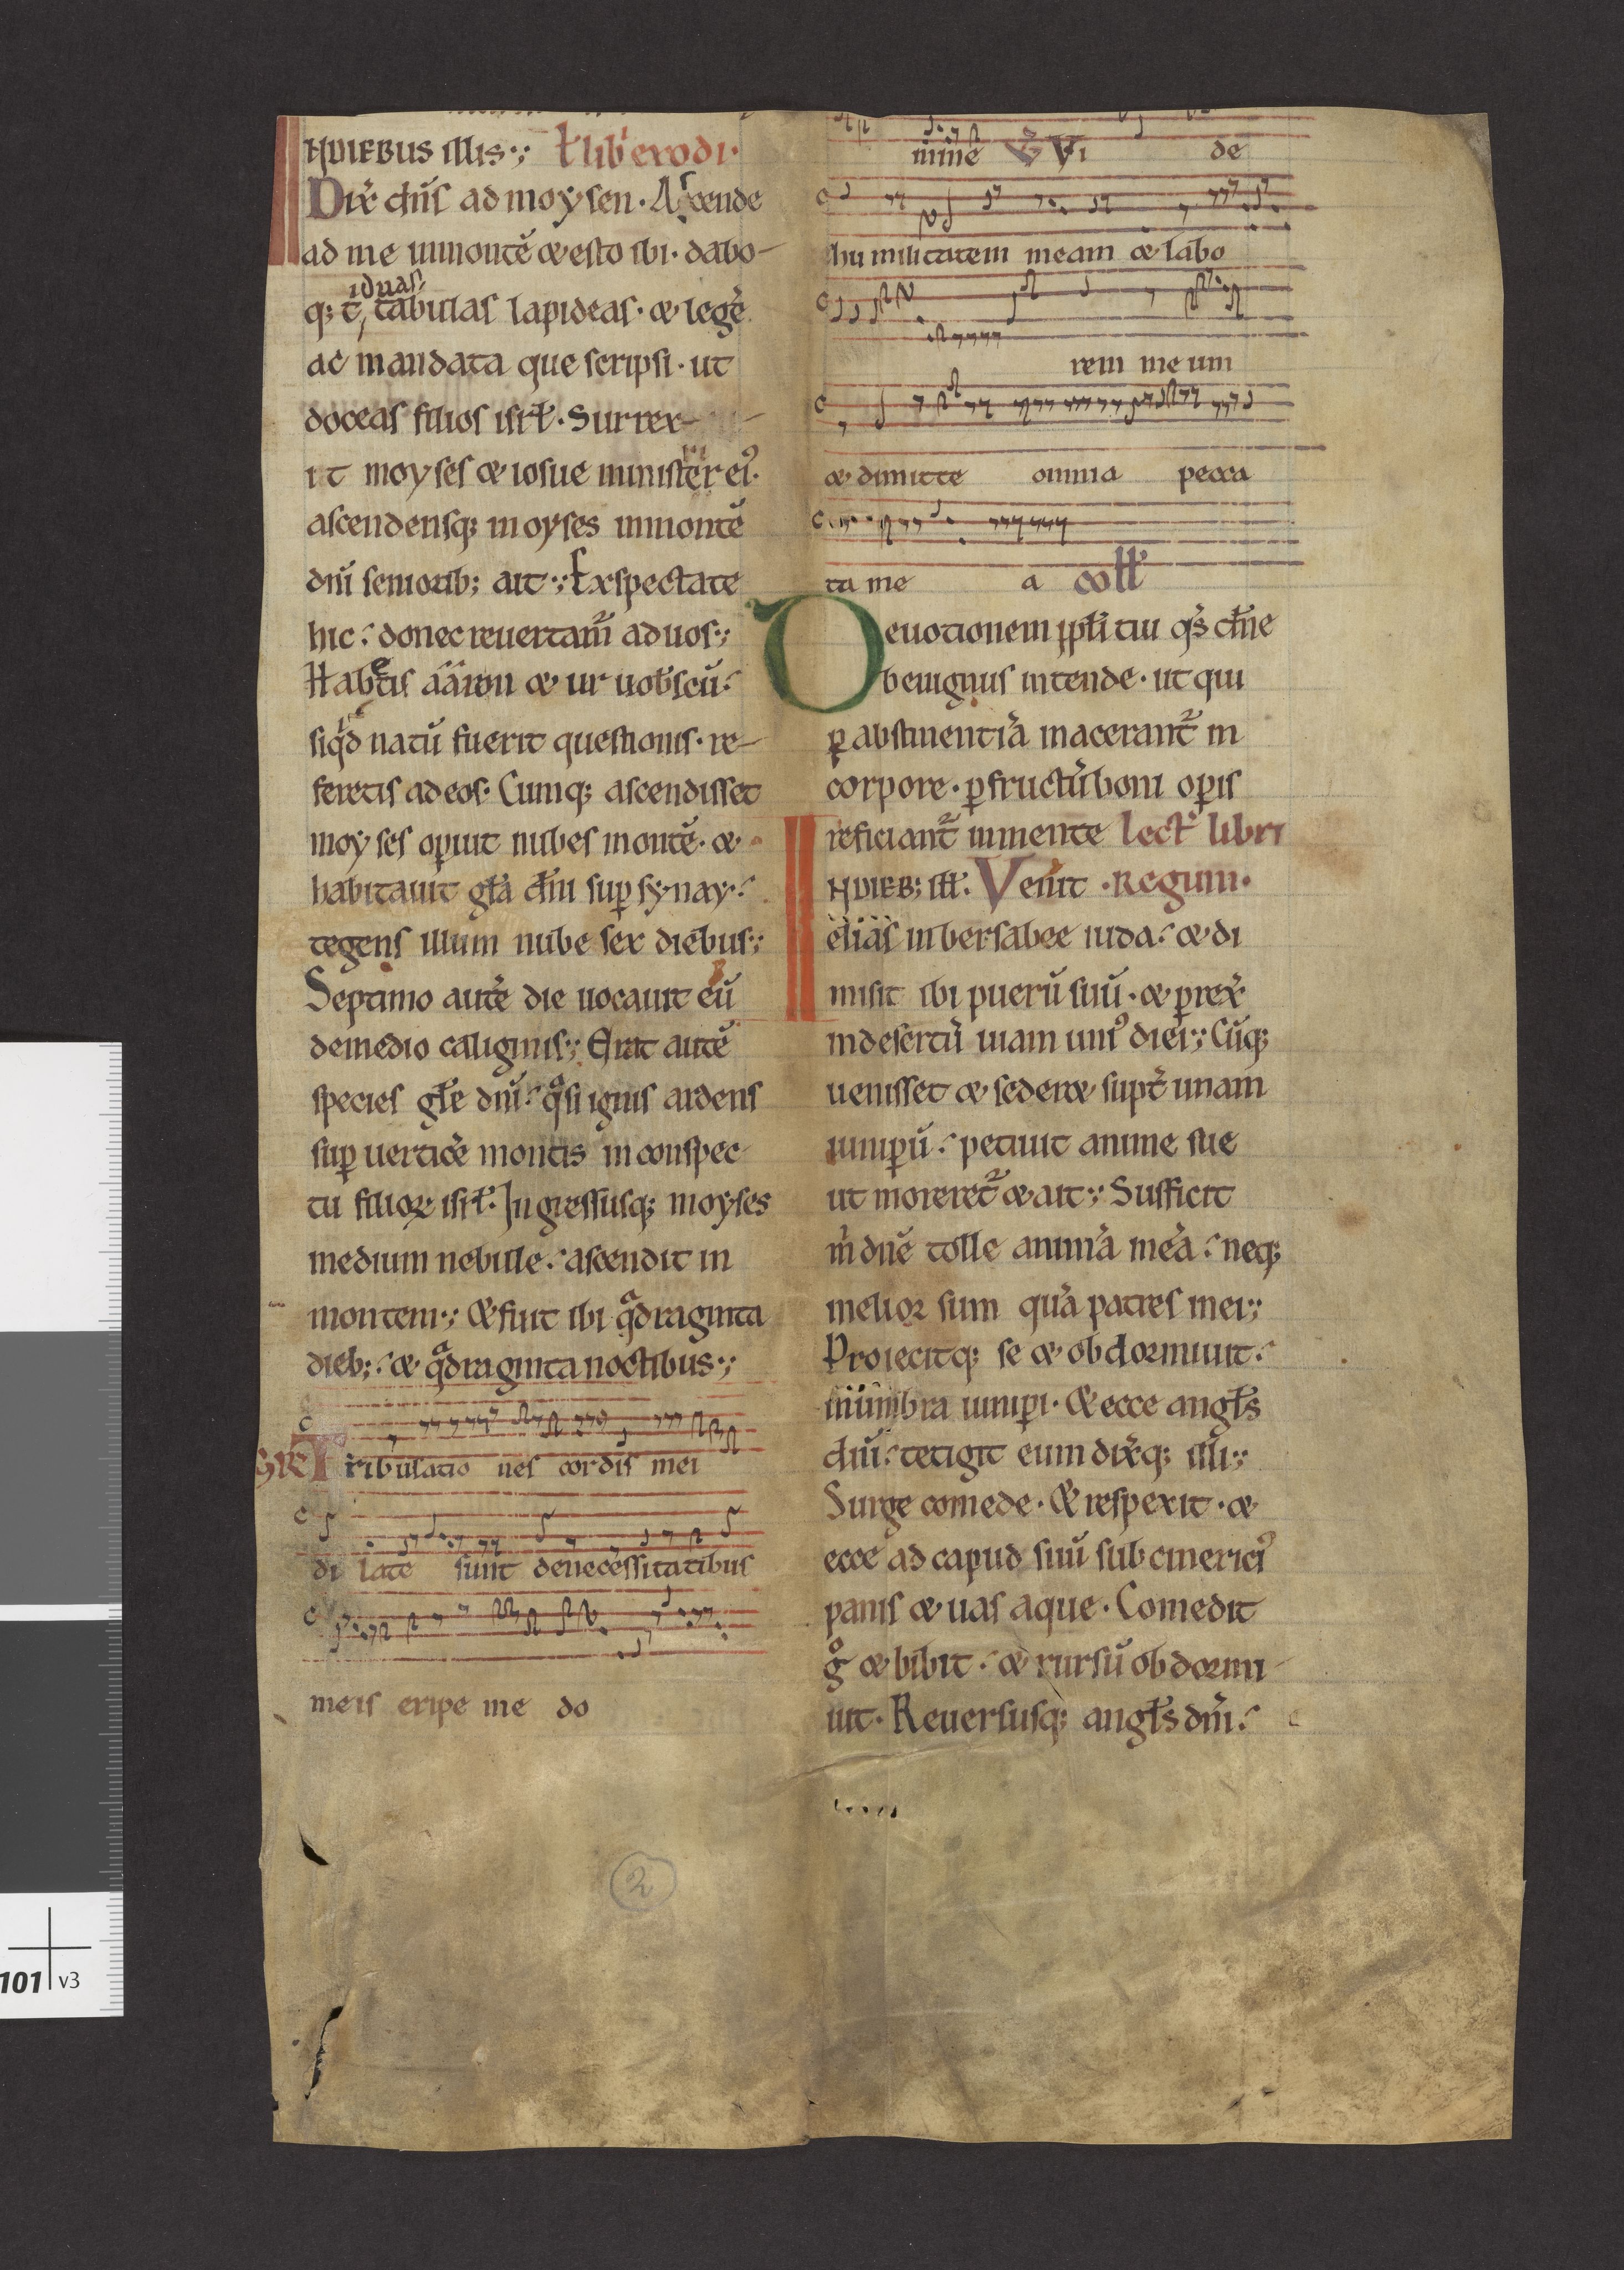 IN DIEBUS illis·; ł lib̃ exodi·
Dix̃ dñs ad moysen· Ascende
ad me inmontẽ & esto ibi· dabo-
q; t̃ iduas tabulas lapideas· & legẽ
ac mandata que scripsi· ut
doceas filios isrł· Surrex-
it moyses & iosue minister ei9·
ascendensq; moyses inmontẽ
dñi seniorib; ait·; Exspectate
hic· donec reuertam̃ aduos·;
Habetis aaron & ur uob̃scũ·
siqd natũ fuerit questionis· re-
feretis adeos· Cumq; ascendisset
moyses opuit nubes montẽ· &
habitauit gła dñi sup synay·
tegens illum nube sex diebus·;
Septimo autẽ die uocauit eũ
demedio caliginis·; Erat autẽ
species głe dñi· qsi ignis ardens
sup uerticẽ montis in conspec
tu filioꝝ isrł· Ingressusq; moyses
medium nebule· ascendit in
montem·; & fuit ibi qdraginta
dieb;· & qdraginta noctibus·;
GR̃ Tribulatio nes cordis mei
di late sunt denecessitatibus
meis eripe me do
mine Ṽ Vi de
humilitatem meam & labo
rem me um
& dimitte omnia pecca
ta me a coll̃
Deuotionem ppłi tui qs̃ dñe
benignus intende· ut qui
p abstinentiã macerant̃ in
corpore· p fructũ boni opis
reficiant̃ inmente lect̃ libri
IN DIEB; ill̃· Venit ·Regum·
elias inbersabee iuda· & di
misit ibi puerũ suũ· & prex̃
indesertũ uiam uni9 diei·; Cũq;
uenisset & seder& supt̃ unam
iunipũ· petiuit anime sue
ut moreret̃ & ait·; Sufficit
m̃ dñe tolle animã meã· neq;
melior sum quã patres mei·;
Proiecitq; se & obdormiuit·
inumbra iunipi· & ecce angłs
dñi· tetigit eum dix̃q; illi·;
Surge comede· & respexit· &
ecce ad capud suũ subcinerici9
panis & uas aque· Comedit
g̊ & bibit· & rursũ obdormi
uit· Reuersusq; angłs dñi·
2
101 v3